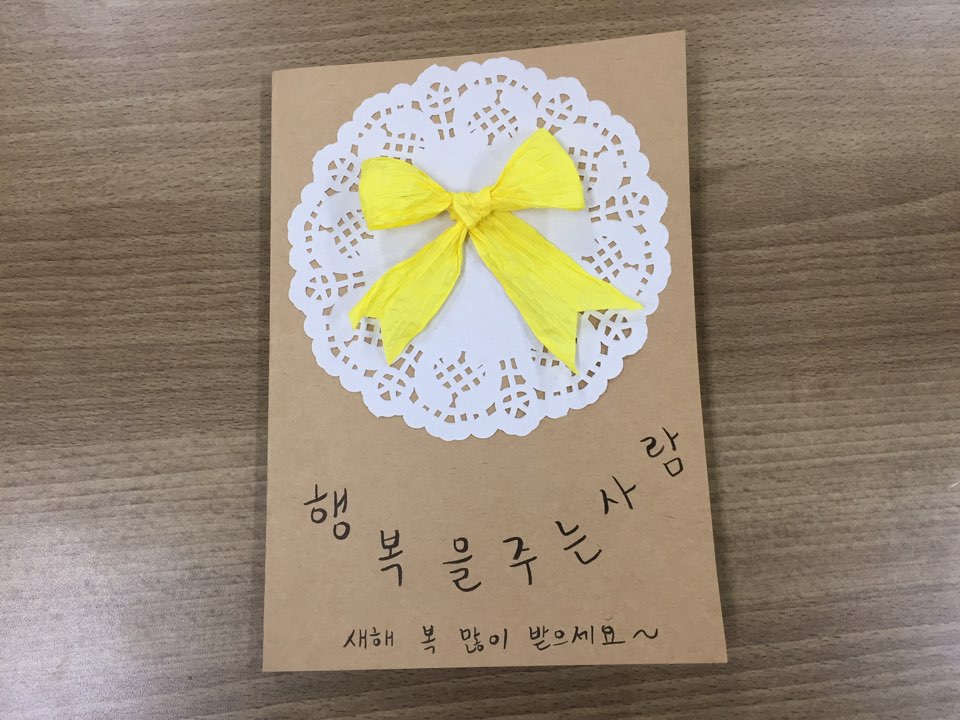 행복을주는사람
새해 복 많이 받으세요~